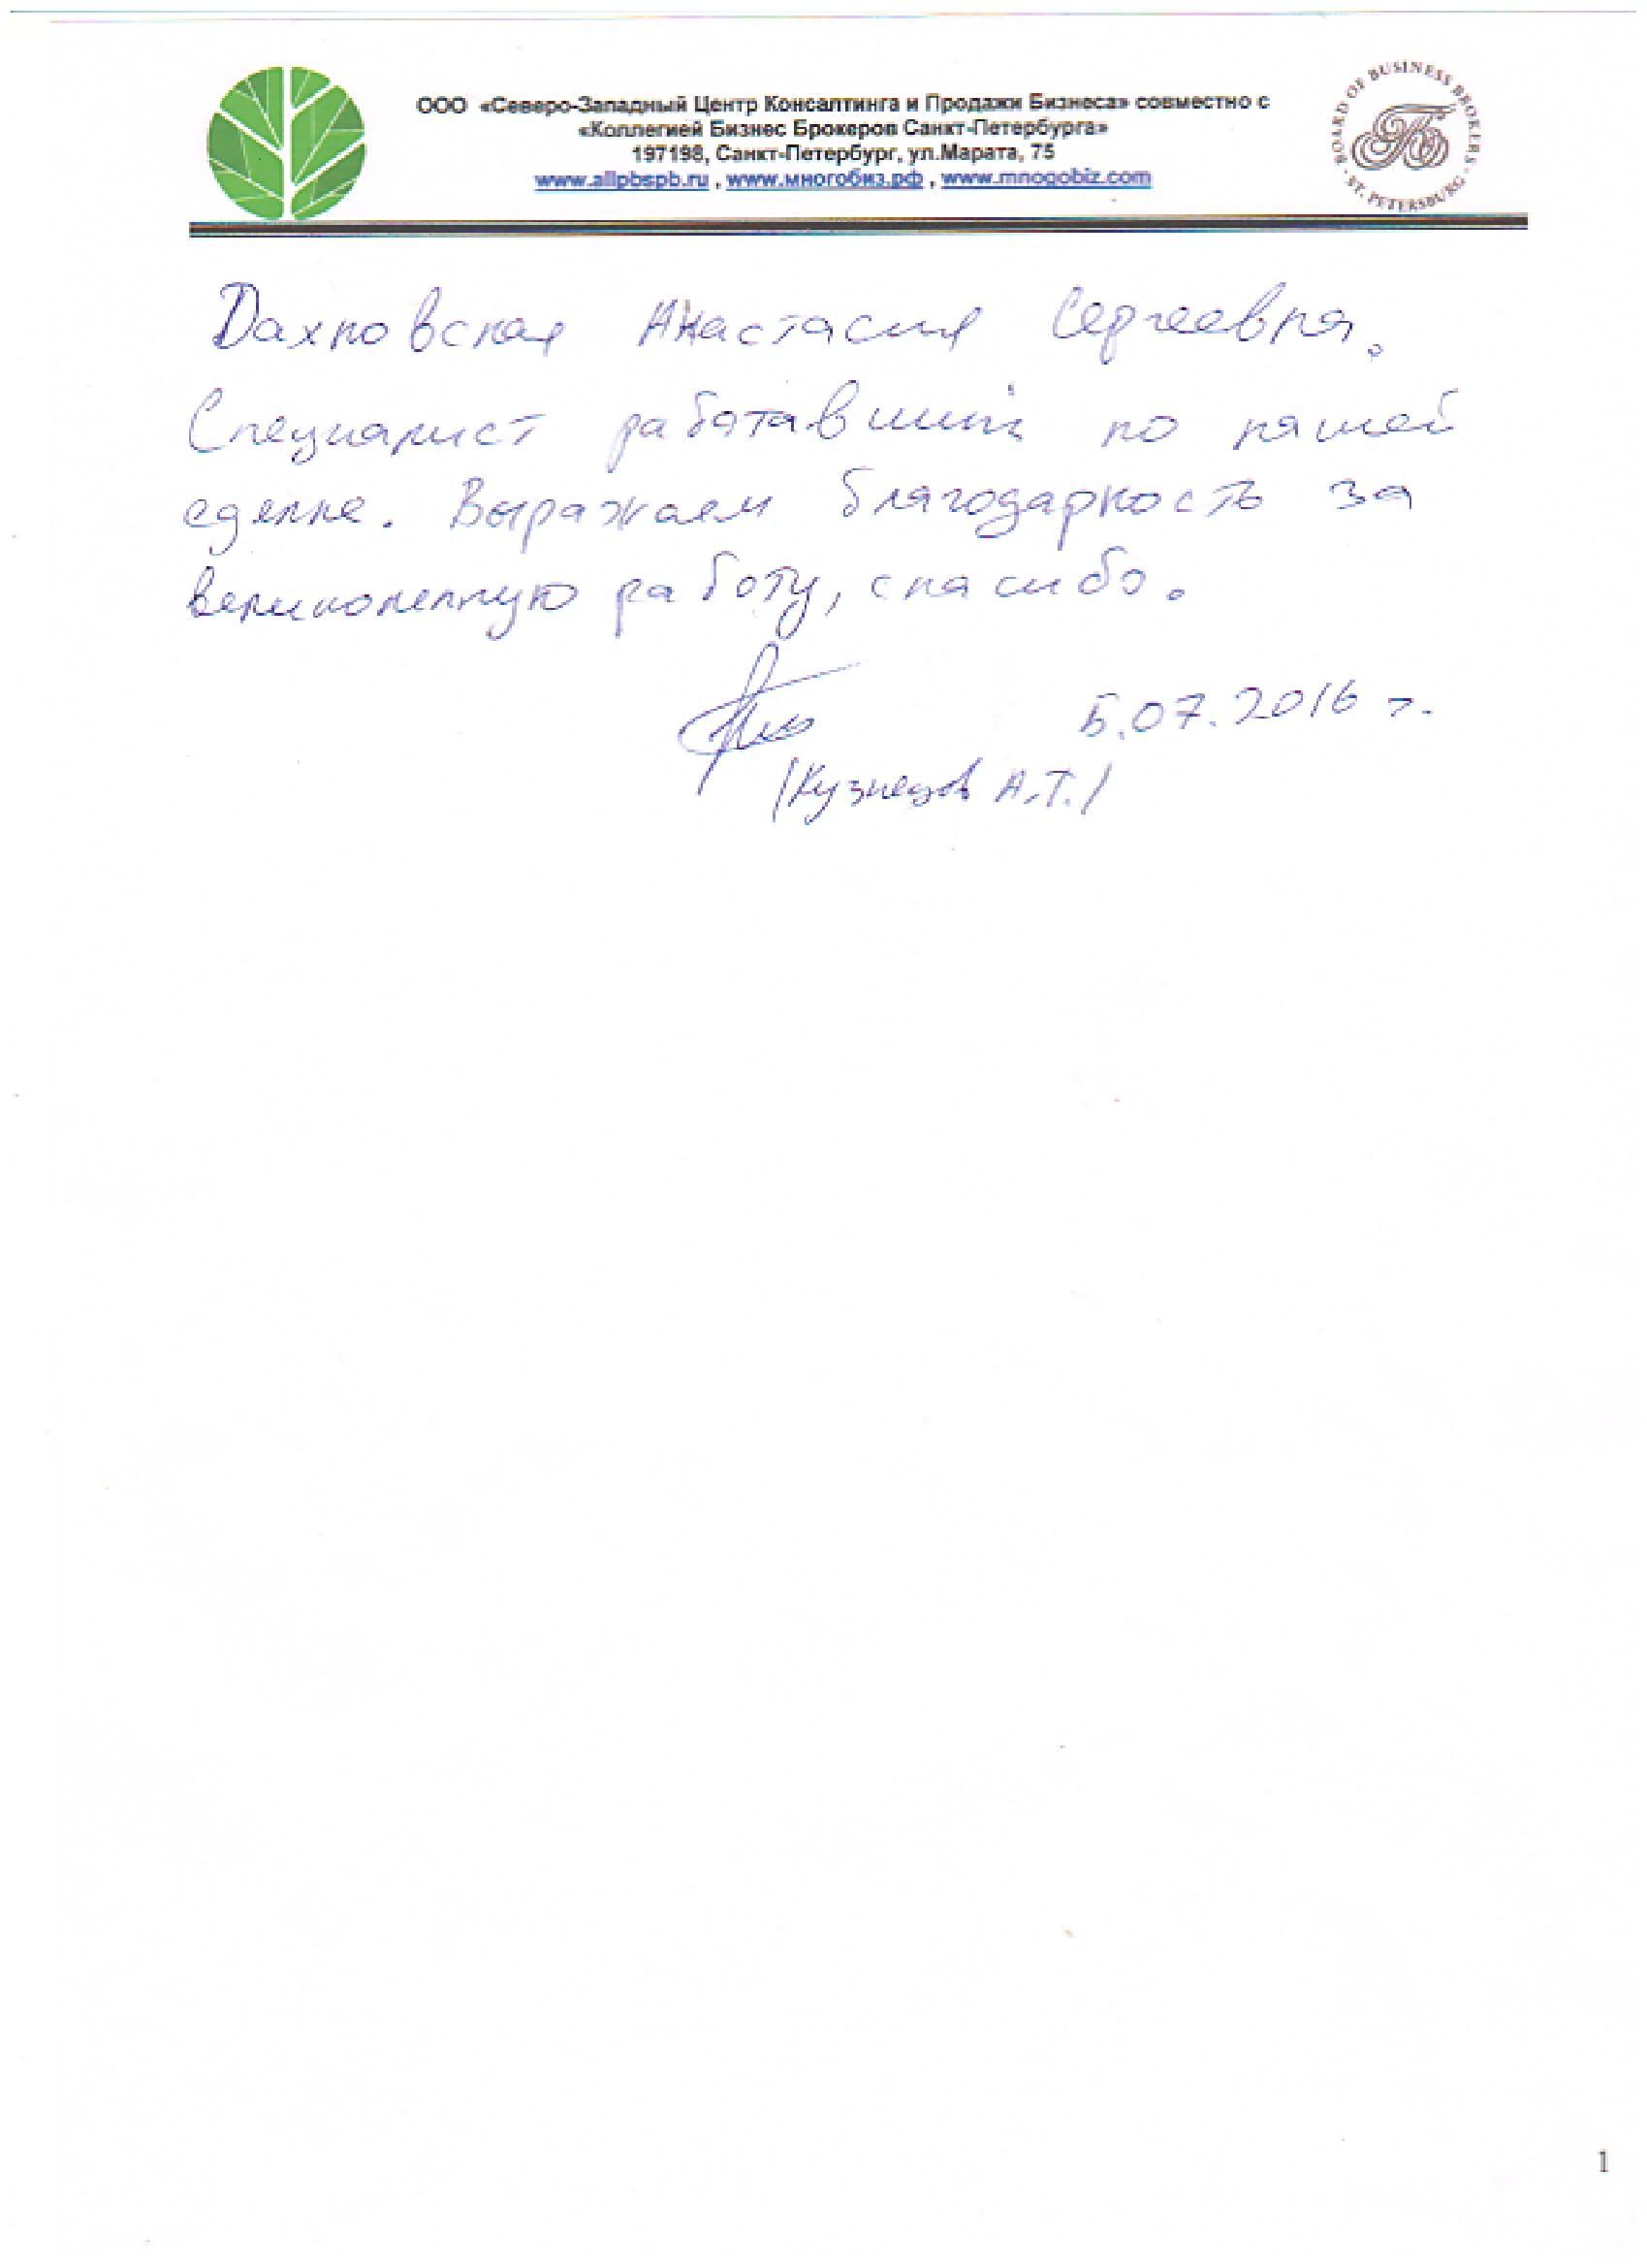 ООО «Северо-Западный Центр Консалтинга и Продажи Бизнеса» совместно с
«Коллегией Бизнес Брокеров Санкт-Петербурга»
197198, Санкт-Петербург, ул.Марата, 75
www.allpbspb.ru , www.многобиз.рф , www.mnogobiz.com
BOARD OF BUSINESS BROKERS · ST. PETERSBURG ·
Анастасия Сергеевна.
Специалист работавший по нашей
сделке. Выражаем благодарность за
великолепную работу, спасибо.
5.07.2016 г.
/Кузнецов А.Т./
1